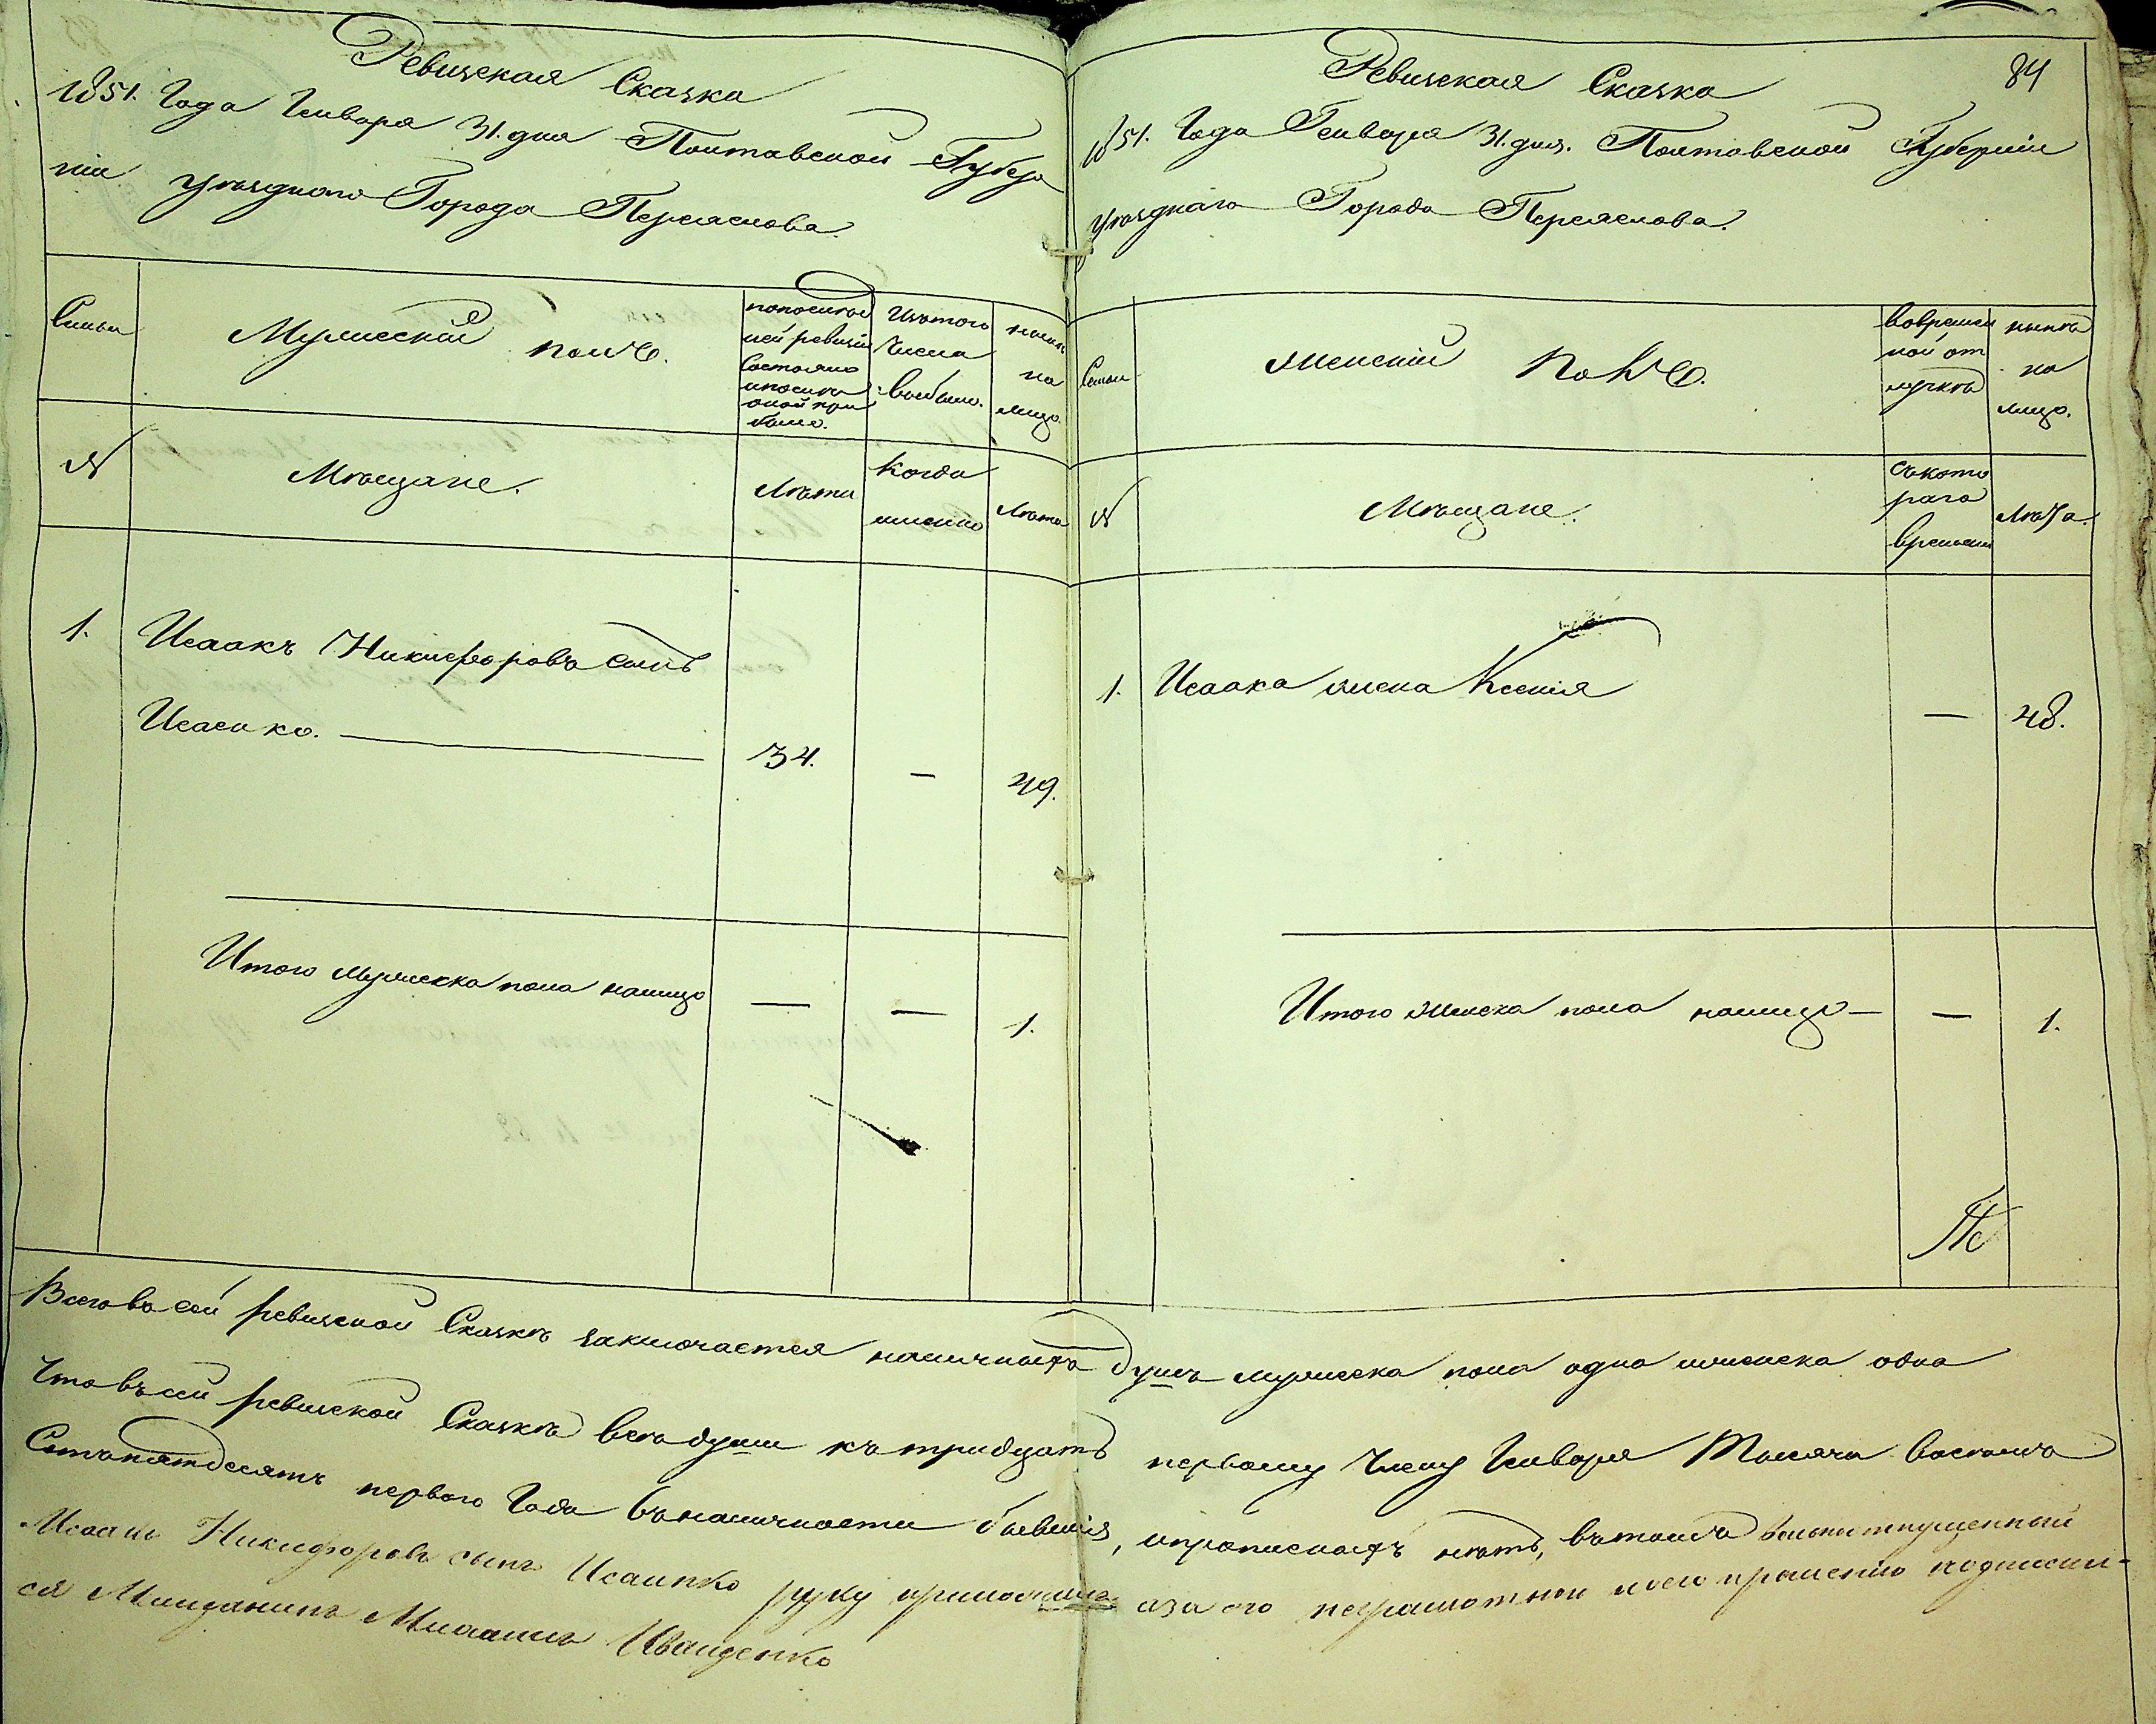 Ревизская Сказка
1851. Года Генваря 31. дня Полтавской Губер
ніи уѣзднаго Города Переяслова.
Семьи
Мужескій полъ.
попослѣд
ней ревизіи
состояло
ипослѣ
оной при
было.
Изтого
числа
выбыло.
нынѣ
на
лицо.
№
Мѣщане.
Лѣта
Когда
именно
Лѣта
1.
Исаакъ Никифоровъ сынъ
Исаенко.
34.
—
49.
Итого мужеска пола налицо — — 1.
Ревизская Сказка
84
1851. Года Генваря 31. дня. Полтавской Губерніи
уѣзднаго Города Переяслова.
Семьи
Женскій полъ.
вовремен
ной от
лучкѣ
нынѣ
на
лицо.
№
Мѣщане.
Съкото
раго
времени
Лѣта.
1. Исаака жена Ксенія — 48.
Итого женска пола налицо — — 1.
Всего въ сей ревизской Сказкѣ заключается наличныхъ душъ мужеска пола одна ииженска одна
Что въ сей ревизской Сказкѣ всѣ души къ тридцать первому Числу Генваря Тысяча восемъ
Сотъ пятдесятъ перваго Года въ наличности бывшія, ипрописныхъ нѣтъ, въ томъ
Исаакъ Никифоровъ сынъ Исаенко руку приложилъ а за его неграмотнои поего прошенію подписал-
ся Мищанинъ Иващенко